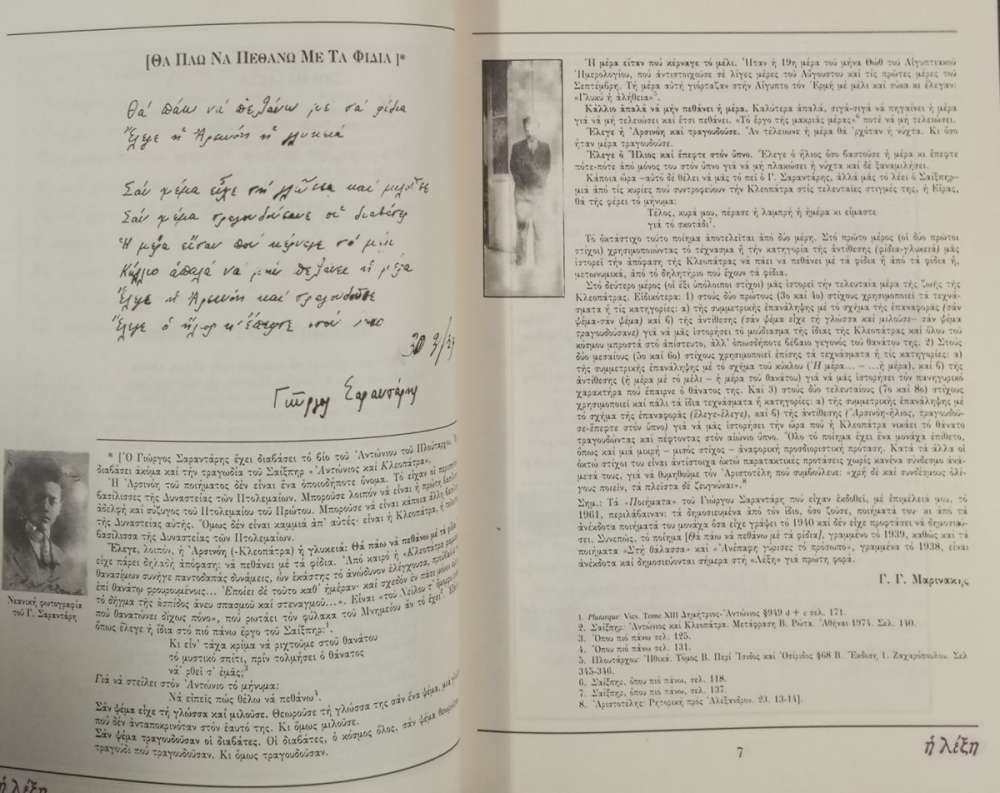 [ΘΑ ΠΑΩ ΝΑ ΠΕΘΑΝΩ ΜΕ ΤΑ ΦΙΔΙΑ ]*
Θά πάω νά πεθάνω με τά φίδια
Ἔλεγε ἡ Ἀρσινόη ἡ γλυκειά
Σάν ψέμα εἶχε τή γλῶσσα καί μιλοῦσε
Σάν ψέμα τραγουδούσανε οἱ διαβάτες
Ἡ μέρα εἴταν πού κέρναγε τό μέλι
Κάλλιο ἀπαλά νά μήν πεθάνει ἡ μέρα
Ἔλεγε ἡ Ἀρσινόη καί τραγουδοῦσε
Ἔλεγε ὁ ἥλιος κ' ἔπεφτε στόν ὕπνο
Γιῶργος Σαραντάρης
* [Ὁ Γιῶργος Σαραντάρης ἔχει διαβάσει τό βίο τοῦ Ἀντώνιου τοῦ Πλούταρχου.
διαβάσει ἀκόμα καί τήν τραγωδία τοῦ Σαίξπηρ «Ἀντώνιος καί Κλεοπάτρα».
Ἡ Ἀρσινόη τοῦ ποιήματος δέν εἶναι ἕνα ὁποιοδήποτε ὄνομα. Τό εἶχαν οἱ
βασίλισσες τῆς Δυναστείας τῶν Πτολεμαίων. Μποροῦσε λοιπόν νά εἶναι ἡ πρώτη
ἀδελφή καί σύζυγος τοῦ Πτολεμαίου τοῦ Πρώτου. Μποροῦσε νά εἶναι κάποια ἄλλη
τῆς Δυναστείας αὐτῆς. Ὅμως δέν εἶναι καμμιά ἀπ' αὐτές· εἶναι ἡ Κλεοπάτρα, ἡ
βασίλισσα τῆς Δυναστείας τῶν Πτολεμαίων.
Ἔλεγε, λοιπόν, ἡ Ἀρσινόη (-Κλεοπάτρα) ἡ γλυκειά: Θά πάω νά πεθάνω μέ τά φίδια
εἶχε πάρει δηλαδή ἀπόφαση: νά πεθάνει μέ τά φίδια. Ἀπό καιρό ἡ «Κλεοπάτρα
θανασίμων συνῆγε παντοδαπάς δυνάμεις, ὧν ἑκάστης τό ἀνώδυνον ἐλέγχουσα,
ἐπί θανάτῳ φρουρουμένοις... Ἐποίει δέ τοῦτο καθ' ἡμέραν· καί σχεδόν ἐν πᾶσι
τό δῆγμα τῆς ἀσπίδος ἄνευ σπασμοῦ καί στεναγμοῦ...». Εἶναι «τοῦ Νείλου τ'
πού θανατώνει δίχως πόνο», πού ρωτάει τόν φύλακα τοῦ Μνημείου ἄν τό ἔχει
ὅπως ἔλεγε ἡ ἴδια στό πιό πάνω ἔργο τοῦ Σαίξπηρ:
Κι εἶν' τάχα κρίμα νά ριχτοῦμε στοῦ θανάτου
τό μυστικό σπίτι, πρίν τολμήσει ὁ θάνατος
νά 'ρθεῖ σ' ἐμᾶς;³
Γιά νά στείλει στόν Ἀντώνιο τό μήνυμα:
Νά εἰπεῖς πώς θέλω νά πεθάνω⁴.
Σάν ψέμα εἶχε τή γλῶσσα καί μιλοῦσε. Θεωροῦσε τή γλῶσσα της σάν ἕνα ψέμα,
πού δέν ἀνταποκρινόταν στόν ἑαυτό της. Κι ὅμως μιλοῦσε.
Σάν ψέμα τραγουδοῦσαν οἱ διαβάτες. Οἱ διαβάτες, ὁ κόσμος ὅλος, σάν ψέμα
τραγούδι πού τραγουδοῦσαν. Κι ὅμως τραγουδοῦσαν.
Νεανική φωτογραφία
τοῦ Γ. Σαραντάρη
ἡ λέξη
Ἡ μέρα εἴταν πού κέρναγε τό μέλι. Ἦταν ἡ 19η μέρα τοῦ μήνα Θώθ τοῦ Αἰγυπτιακοῦ
Ἡμερολογίου, πού ἀντιστοιχοῦσε σέ λίγες μέρες τοῦ Αὔγουστου καί τίς πρῶτες μέρες τοῦ
Σεπτέμβρη. Τή μέρα αὐτή γιόρταζαν στήν Αἴγυπτο τόν Ἑρμῆ μέ μέλι καί σῦκα κι ἔλεγαν:
«Γλυκύ ἡ ἀλήθεια»⁵.
Κάλλιο ἀπαλά νά μήν πεθάνει ἡ μέρα. Καλύτερα ἀπαλά, σιγά-σιγά νά πηγαίνει ἡ μέρα
γιά νά μή τελειώσει καί ἔτσι πεθάνει. «Τό ἔργο τῆς μακριᾶς μέρας»⁶ ποτέ νά μή τελειώσει.
Ἔλεγε ἡ Ἀρσινόη καί τραγουδοῦσε. Ἄν τέλειωνε ἡ μέρα θά 'ρχόταν ἡ νύχτα. Κι ὅσο
ἦταν μέρα τραγουδοῦσε.
Ἔλεγε ὁ Ἥλιος καί ἔπεφτε στόν ὕπνο. Ἔλεγε ὁ ἥλιος ὅσο βαστοῦσε ἡ μέρα κι ἔπεφτε
πότε-πότε ἀπό μόνος του στόν ὕπνο γιά νά μή πλακώσει ἡ νύχτα καί δέ ξαναμιλήσει.
Κάποια ὥρα –αὐτό δέ θέλει νά μᾶς τό πεῖ ὁ Γ. Σαραντάρης, ἀλλά μᾶς τό λέει ὁ Σαίξπηρ–
μιά ἀπό τίς κυρίες πού συντροφεύουν τήν Κλεοπάτρα στίς τελευταῖες στιγμές της, ἡ Εἴρας,
θά τῆς φέρει τό μήνυμα:
Τέλος, κυρά μου, πέρασε ἡ λαμπρή ἡ ἡμέρα κι εἴμαστε
γιά τό σκοτάδι⁷.
Τό ὀκτάστιχο τοῦτο ποίημα ἀποτελεῖται ἀπό δύο μέρη. Στό πρῶτο μέρος (οἱ δύο πρῶτοι
στίχοι) χρησιμοποιώντας τό τέχνασμα ἤ τήν κατηγορία τῆς ἀντίθεσης (φίδια-γλυκειά) μᾶς
ἱστορεῖ τήν ἀπόφαση τῆς Κλεοπάτρας νά πάει νά πεθάνει μέ τά φίδια ἤ ἀπό τά φίδια ἤ,
μετωνυμικά, ἀπό τό δηλητήριο πού ἔχουν τά φίδια.
Στό δεύτερο μέρος (οἱ ἕξι ὑπόλοιποι στίχοι) μᾶς ἱστορεῖ τήν τελευταία μέρα τῆς ζωῆς τῆς
Κλεοπάτρας. Εἰδικότερα: 1) στούς δυό πρώτους (3ο καί 4ο) στίχους χρησιμοποιεῖ τά τεχνά-
σματα ἤ τίς κατηγορίες: α) τῆς συμμετρικῆς ἐπανάληψης μέ τό σχῆμα τῆς ἐπαναφορᾶς (σάν
ψέμα-σάν ψέμα) καί β) τῆς ἀντίθεσης (σάν ψέμα εἶχε τή γλώσσα καί μιλοῦσε– σάν ψέμα
τραγουδούσανε) γιά νά μᾶς ἱστορήσει τό μούδιασμα τῆς ἴδιας τῆς Κλεοπάτρας καί ὅλου τοῦ
κόσμου μπροστά στό ἀπίστευτο, ἀλλ' ὁπωσδήποτε βέβαιο γεγονός τοῦ θανάτου της. 2) Στούς
δυό μεσαίους (5ο καί 6ο) στίχους χρησιμοποιεῖ ἐπίσης τά τεχνάσματα ἤ τίς κατηγορίες: α)
τῆς συμμετρικῆς ἐπανάληψης μέ τό σχῆμα τοῦ κύκλου (Ἡ μέρα... – ...ἡ μέρα), καί β) τῆς
ἀντίθεσης (ἡ μέρα μέ τό μέλι – ἡ μέρα τοῦ θανάτου) γιά νά μᾶς ἱστορήσει τόν πανηγυρικό
χαρακτήρα πού ἔπαιρνε ὁ θάνατός της. Καί 3) στούς δυό τελευταίους (7ο καί 8ο) στίχους
χρησιμοποιεῖ καί πάλι τά ἴδια τεχνάσματα ἤ κατηγορίες: α) τῆς συμμετρικῆς ἐπανάληψης μέ
τό σχῆμα τῆς ἐπαναφορᾶς (ἔλεγε-ἔλεγε), καί β) τῆς ἀντίθεσης (Ἀρσινόη-ἥλιος, τραγουδοῦ-
σε-ἔπεφτε στόν ὕπνο) γιά νά μᾶς ἱστορήσει τήν ὥρα πού ἡ Κλεοπάτρα νικάει τό θάνατο
τραγουδώντας καί πέφτοντας στόν αἰώνιο ὕπνο. Ὅλο τό ποίημα ἔχει ἕνα μονάχα ἐπίθετο,
ὅπως καί μιά μικρή – μισός στίχος – ἀναφορική προσδιοριστική πρόταση. Κατά τά ἄλλα οἱ
ὀκτώ στίχοι του εἶναι ἀντίστοιχα ὀκτώ παρατακτικές προτάσεις χωρίς κανένα σύνδεσμο ἀνά-
μεσά τους, γιά νά θυμηθοῦμε τόν Ἀριστοτέλη πού συμβούλευε: «χρή δέ καί συνδέσμους ὀλί-
γους ποιεῖν, τά πλεῖστα δέ ζευγνύναι».⁸
Σημ.: Τά «Ποιήματα» τοῦ Γιώργου Σαραντάρη πού εἶχαν ἐκδοθεῖ, μέ ἐπιμέλειά μου, τό
1961, περιλάβαιναν: τά δημοσιευμένα ἀπό τόν ἴδιο, ὅσο ζοῦσε, ποιήματά του· κι ἀπό τά
ἀνέκδοτα ποιήματά του μονάχα ὅσα εἶχε γράψει τό 1940 καί δέν εἶχε προφτάσει νά δημοσιεύ-
σει. Συνεπῶς, τό ποίημα [Θά πάω νά πεθάνω μέ τά φίδια], γραμμένο τό 1939, καθώς καί τά
ποιήματα «Στή θάλασσα» καί «Ἀνέπαφη γύρισες τό πρόσωπο», γραμμένα τό 1938, εἶναι
ἀνέκδοτα καί δημοσιεύονται σήμερα στή «Λέξη» γιά πρώτη φορά.
Γ. Γ. Μαρινάκης
1. Plutarque: Vies. Tome XIII Δημήτριος-Ἀντώνιος §949 d + e σελ. 171.
2. Σαίξπηρ, Ἀντώνιος καί Κλεοπάτρα. Μετάφραση Β. Ρώτα. Ἀθήναι 1974. Σελ. 140.
3. Ὅπου πιό πάνω σελ. 125.
4. Ὅπου πιό πάνω σελ. 131.
5. Πλουτάρχου: Ἠθικά. Τόμος Β. Περί Ἴσιδος καί Ὀσίριδος §68 Β. Ἔκδοση Ι. Ζαχαρόπουλου. Σελ
345-346.
6. Σαίξπηρ, ὅπου πιό πάνω, σελ. 118.
7. Σαίξπηρ, ὅπου πιό πάνω, σελ. 137.
8. Ἀριστοτέλης: Ρητορική πρός Ἀλέξανδρον. 23, 13-14].
7
ἡ λέξη